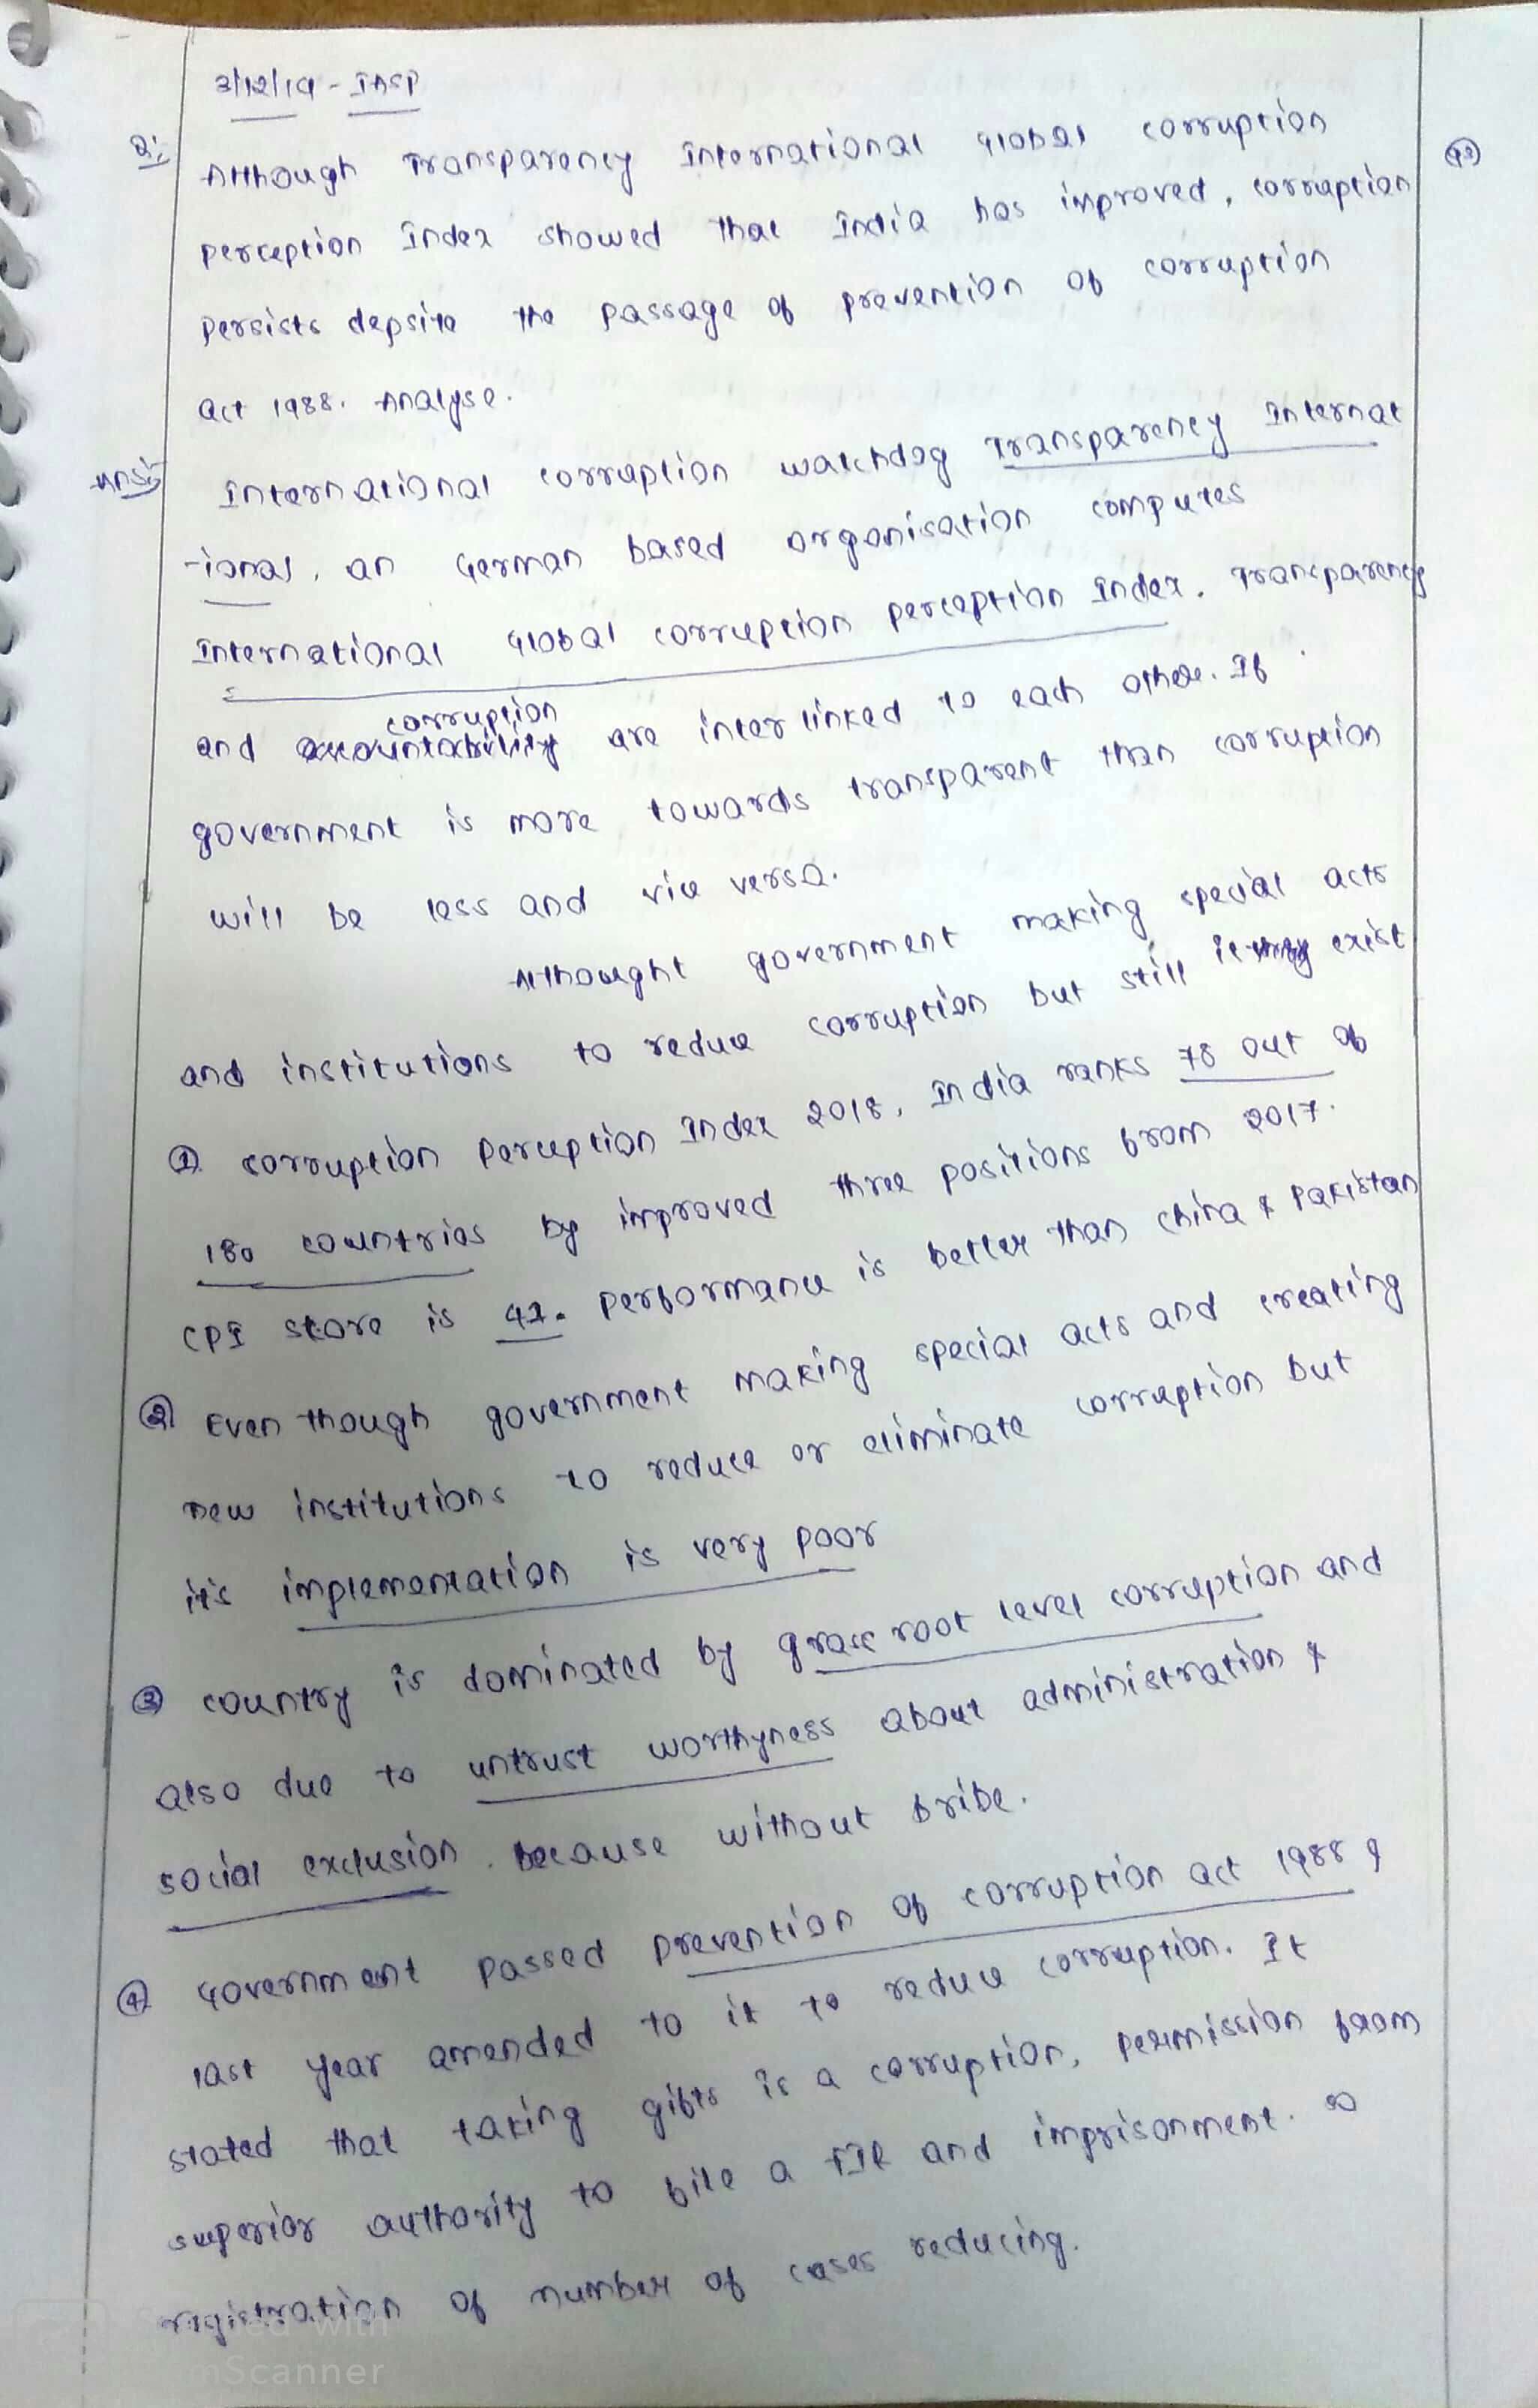 3/12/19 - IASP
Q:
Although Transparency International Global corruption
perception Index showed that India has improved, corruption
persists depsite the passage of prevention of corruption
act 1988. Analyse.
Ans:
International corruption watchdog Transparency Internat
-ional, an German based organisation computes
International Global corruption perception Index. Transparency
corruption
and accountability are inter linked to each other. If
government is more towards transparent than corruption
will be less and vice versa.
Althought government making special acts
and institutions to reduce corruption but still it exist
① corruption perception Index 2018, India ranks 78 out of
180 countries by improved three positions from 2017.
CPI score is 41. performance is better than china & pakistan
② Even though government making special acts and creating
new institutions to reduce or eliminate corruption but
it's implementation is very poor
③ country is dominated by grass root level corruption and
also due to untrust worthyness about administration &
social exclusion. because without bribe.
④ Government passed prevention of corruption act 1988 &
last year amended to it to reduce corruption. It
stated that taking gifts is a corruption, permission from
superior authority to file a FIR and imprisonment. so
registration of number of cases reducing.